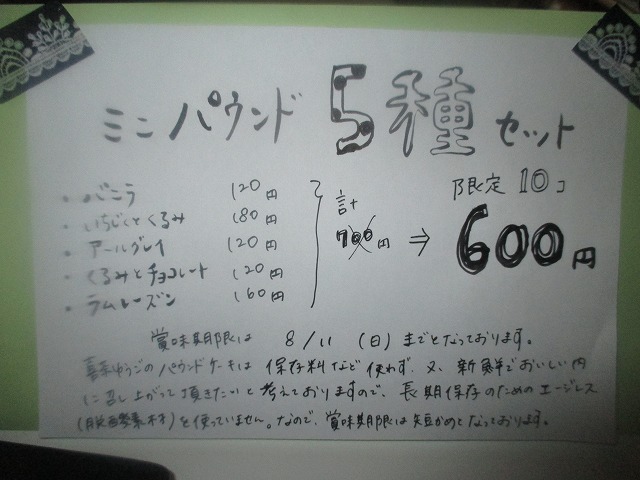 ミニパウンド 5種セット
限定 10コ
・バニラ 120円
・いちじくとくるみ 180円
・アールグレイ 120円
・くるみとチョコレート 120円
・ラムレーズン 160円
計 700円 ⇒ 600円
賞味期限は 8/11 (日) までとなっております。
喜楽ゆうじのパウンドケーキは 保存料など使わず、又、新鮮でおいしい内
に召し上がって頂きたいと考えておりますので、長期保存のためのエージレス
(脱酸素材)を使っていません。なので、賞味期限は短かめとなっております。